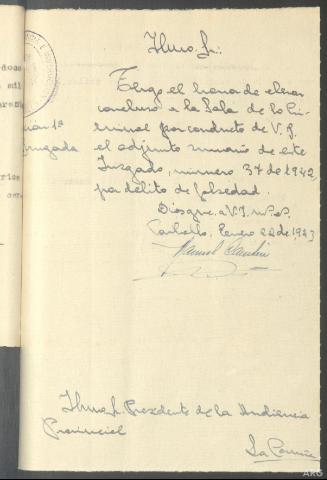 Ilmo. Sr.:
Tengo el honor de elevar
concluso a la Sala de lo Cri-
minal por conducto de V.I.
el adjunto sumario de este
Juzgado, número 37 de 1942,
por delito de falsedad.
Dios gue. a V.I. m.s a.s
Carballo, Enero 22 de 1943
Manuel
Ilmo. Sr. Presidente de la Audiencia
Provincial
La Coruña
ARG